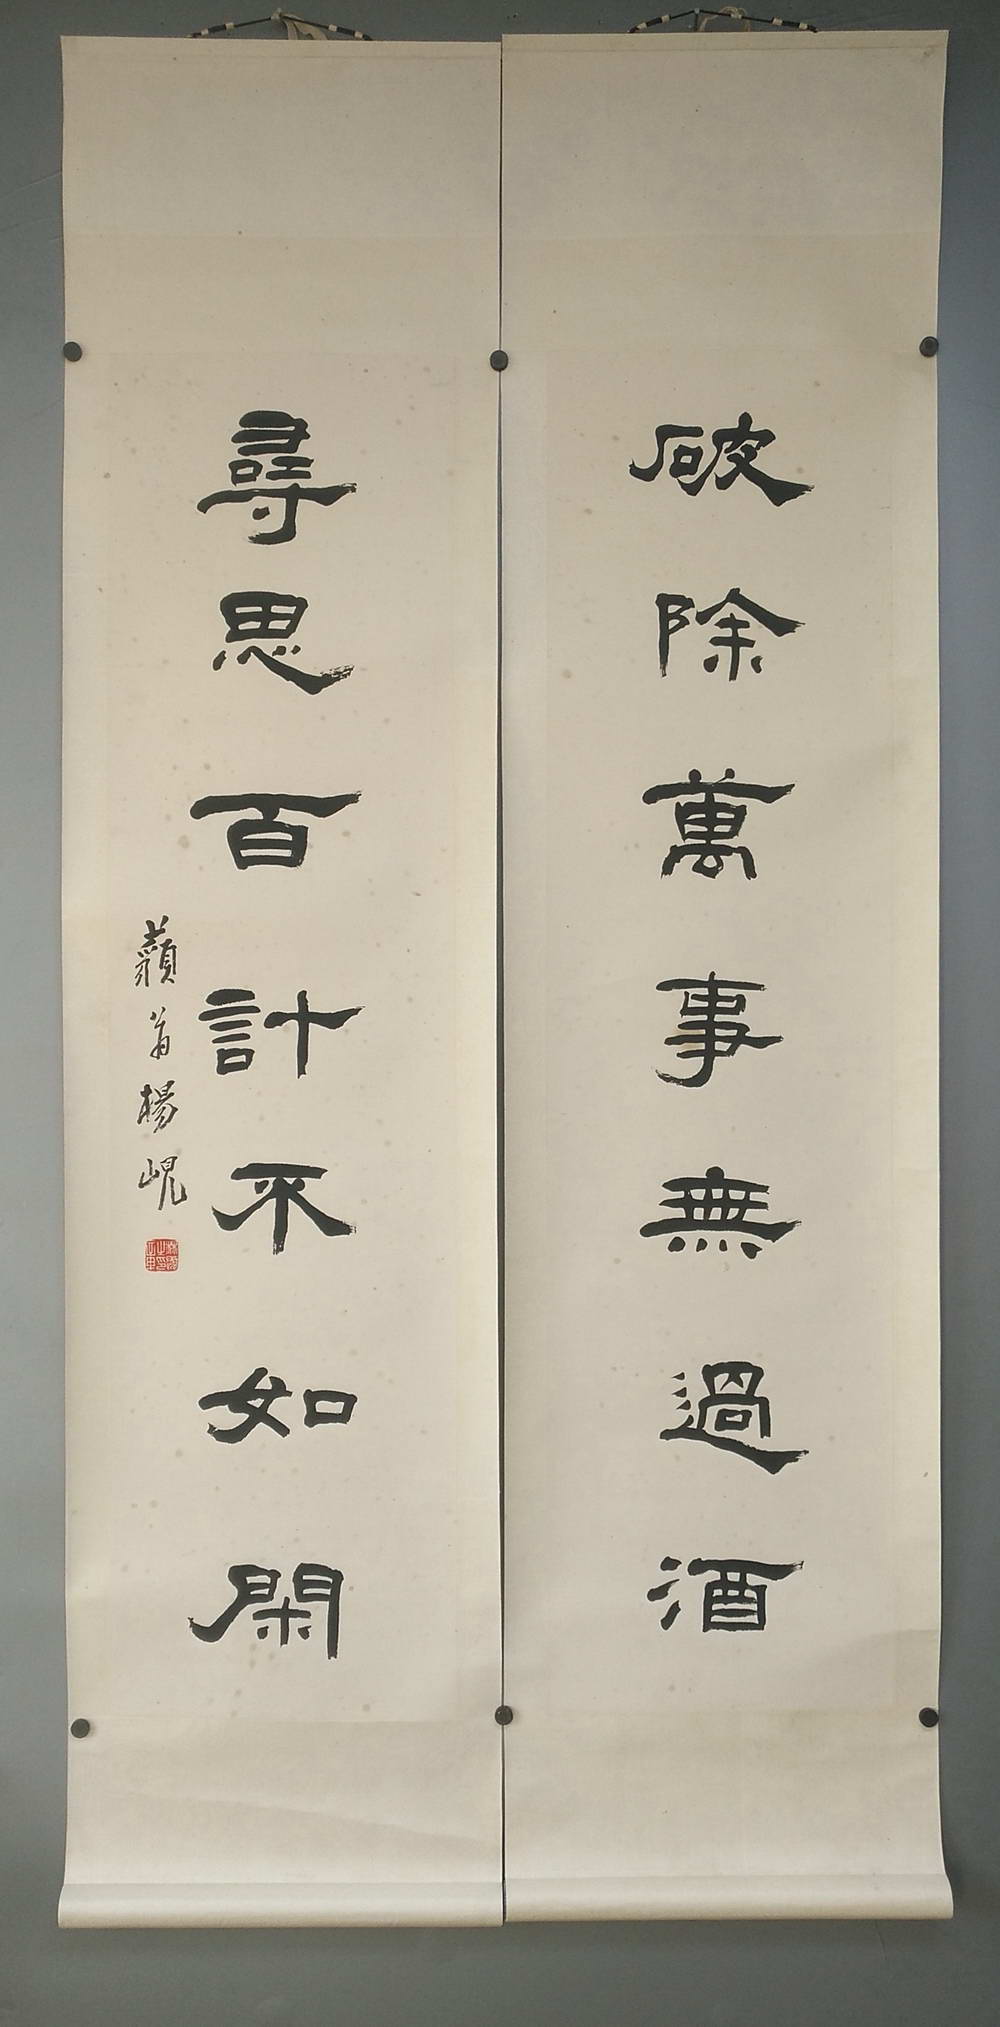 破除萬事無過酒
尋思百計不如閑
藾翁楊峴